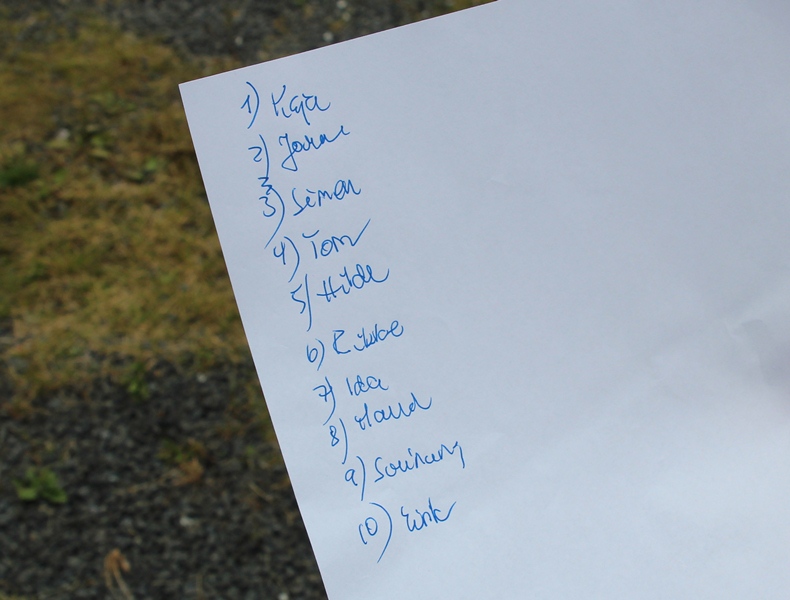 1) Kaja
2)
3) Simen
4) Tom
5) Hilde
6) Rikke
7) Ida
8) Maud
9)
10) Eirik